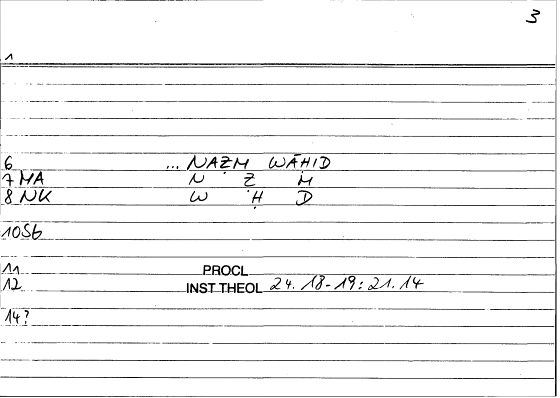 3
1
6 ... NAẒM WĀḤID
7 MA N Ẓ M
8 NK W Ḥ D
10Sb
11 PROCL
12 INST THEOL 24.18-19: 21.14
14?